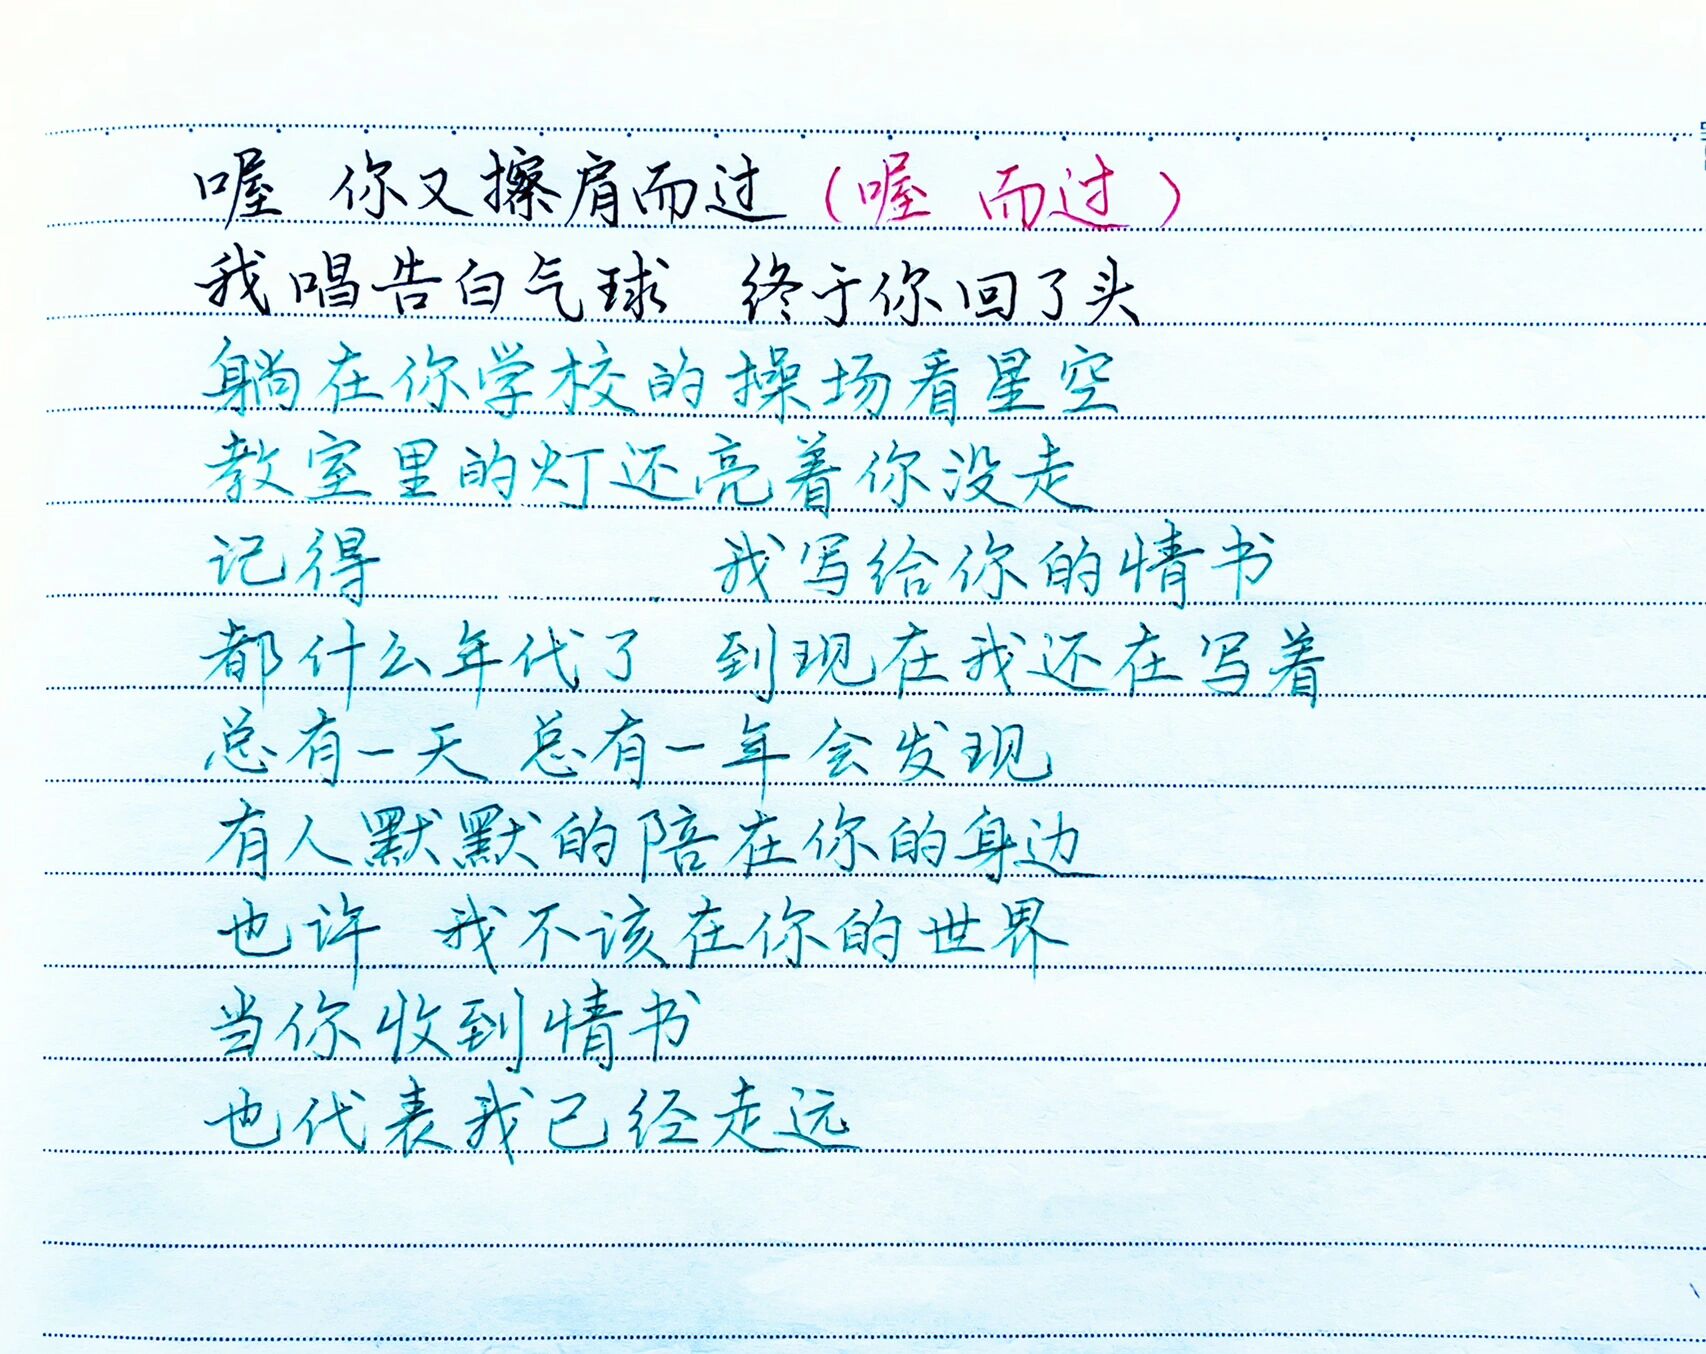 喔 你又擦肩而过（喔 而过）
我唱告白气球 终于你回了头
躺在你学校的操场看星空
教室里的灯还亮着你没走
记得 我写给你的情书
都什么年代了 到现在我还在写着
总有一天 总有一年会发现
有人默默的陪在你的身边
也许 我不该在你的世界
当你收到情书
也代表我已经走远